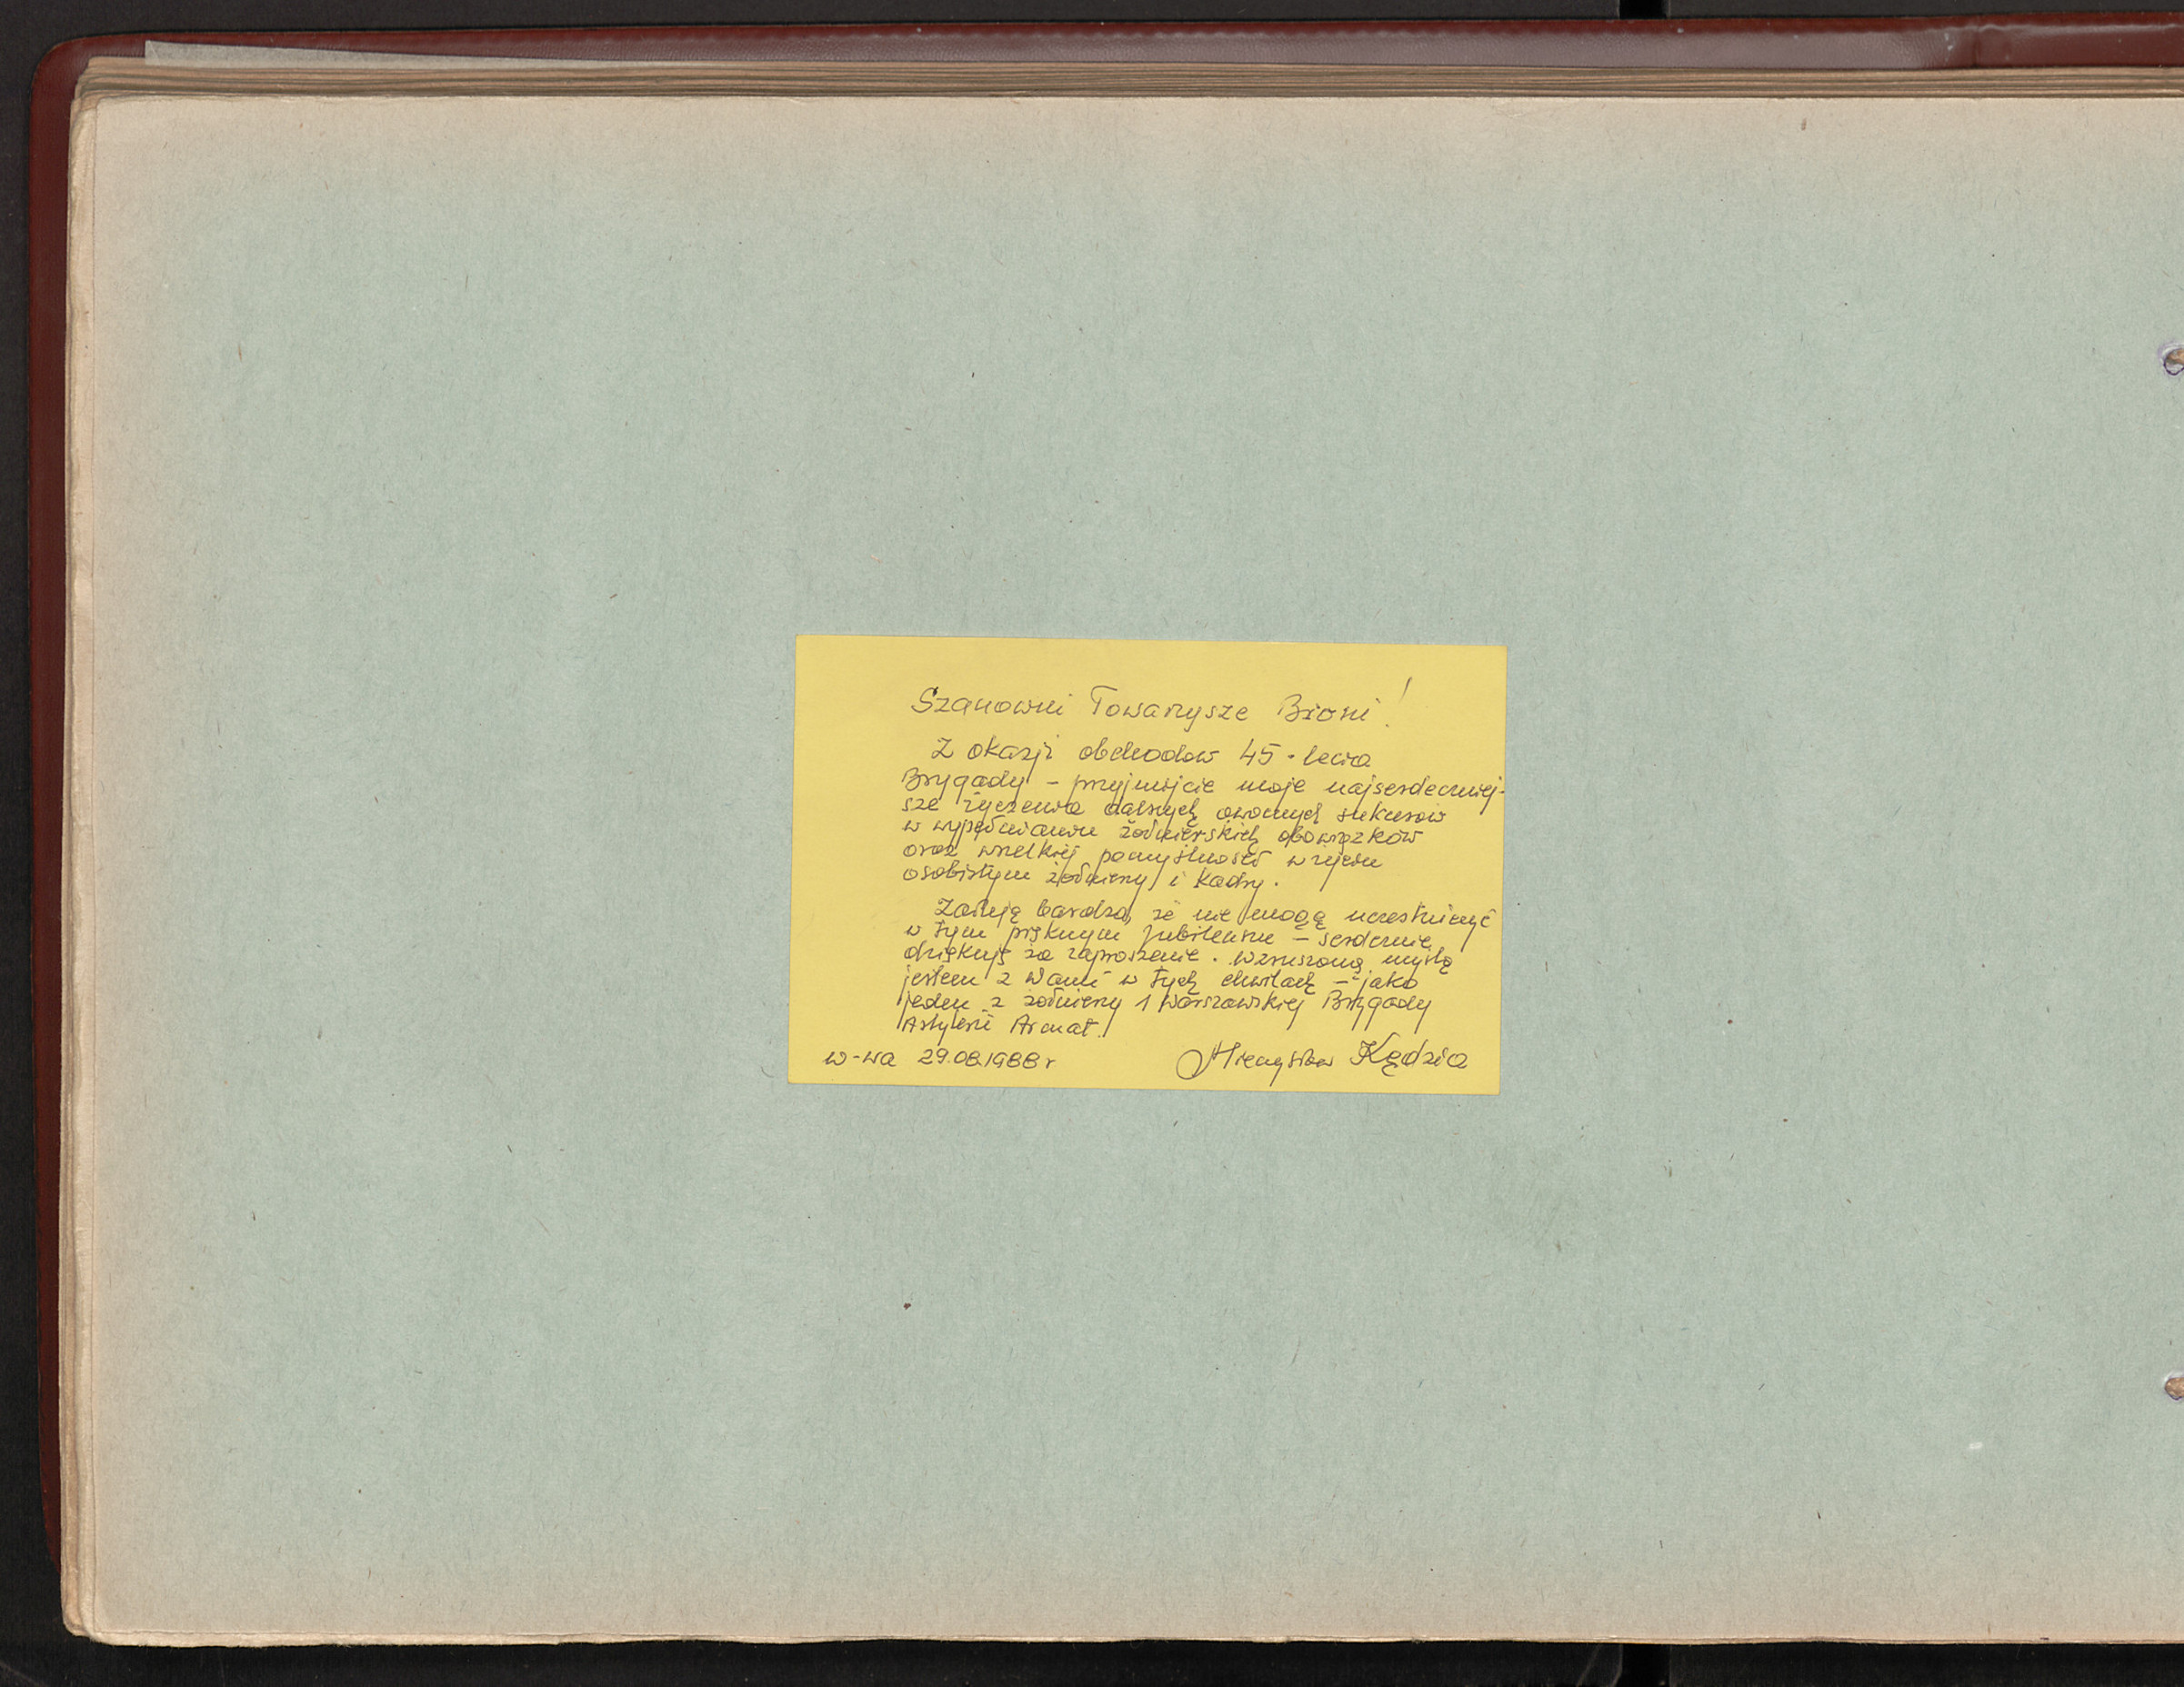 Szanowni Towarzysze Broni!
Z okazji obchodów 45-lecia
Brygady – przyjmijcie moje najserdeczniej-
sze życzenia dalszych owocnych sukcesów
w wypełnianiu żołnierskich obowiązków
oraz wszelkiej pomyślności w życiu
osobistym żołnierzy i kadry.
Żałuję bardzo, że nie mogę uczestniczyć
w tym pięknym Jubileuszu – serdecznie
dziękuję za zaproszenie. Wzruszoną myślą
jestem z Wami w tych chwilach – jako
jeden z żołnierzy 1 Warszawskiej Brygady
Artylerii Armat.
W-wa 29.08.1988 r
Mieczysław Kędzia